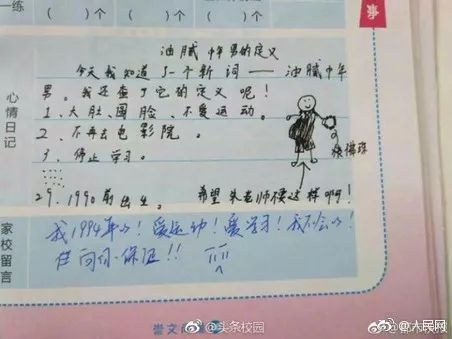 一练
( )个 ( )个 ( )个 ( )个
心情日记
油腻中年男的定义
今天我知道了一个新词——油腻中年
男。我还查了它的定义呢！
1、大肚、圆脸、不爱运动。
2、不再去电影院。
3、停止学习。
29、1990前出生。 希望朱老师不要这样啊！
家校留言
我1994年的！爱运动！爱学习！我不会的！
向你保证!!
崇文
@头条校园
@人民网